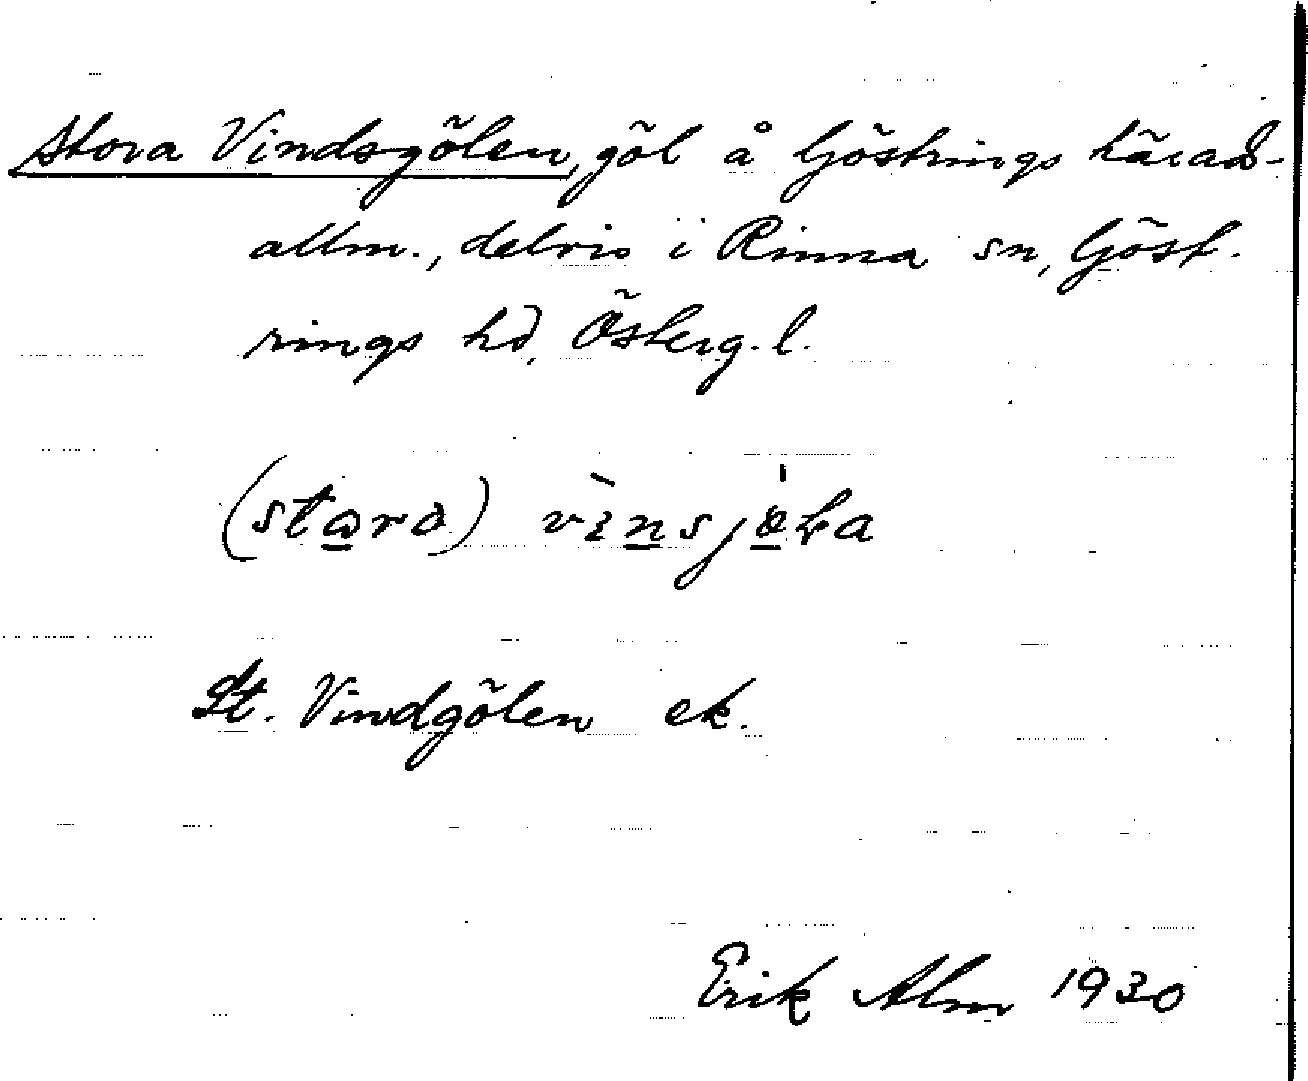 Stora Vindsgölen, göl å Göstrings härads-
allm., delvis i Rinna sn, Göst-
rings hd, Österg. l.
St. Vindgölen ek.
Erik Alm 1930